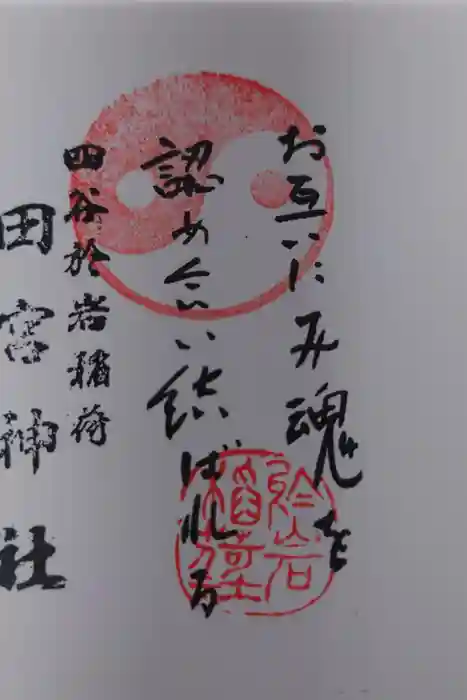 お互いにみ魂を
認め合い結ばれる
四谷於岩稲荷
田宮神社
於岩
稲荷